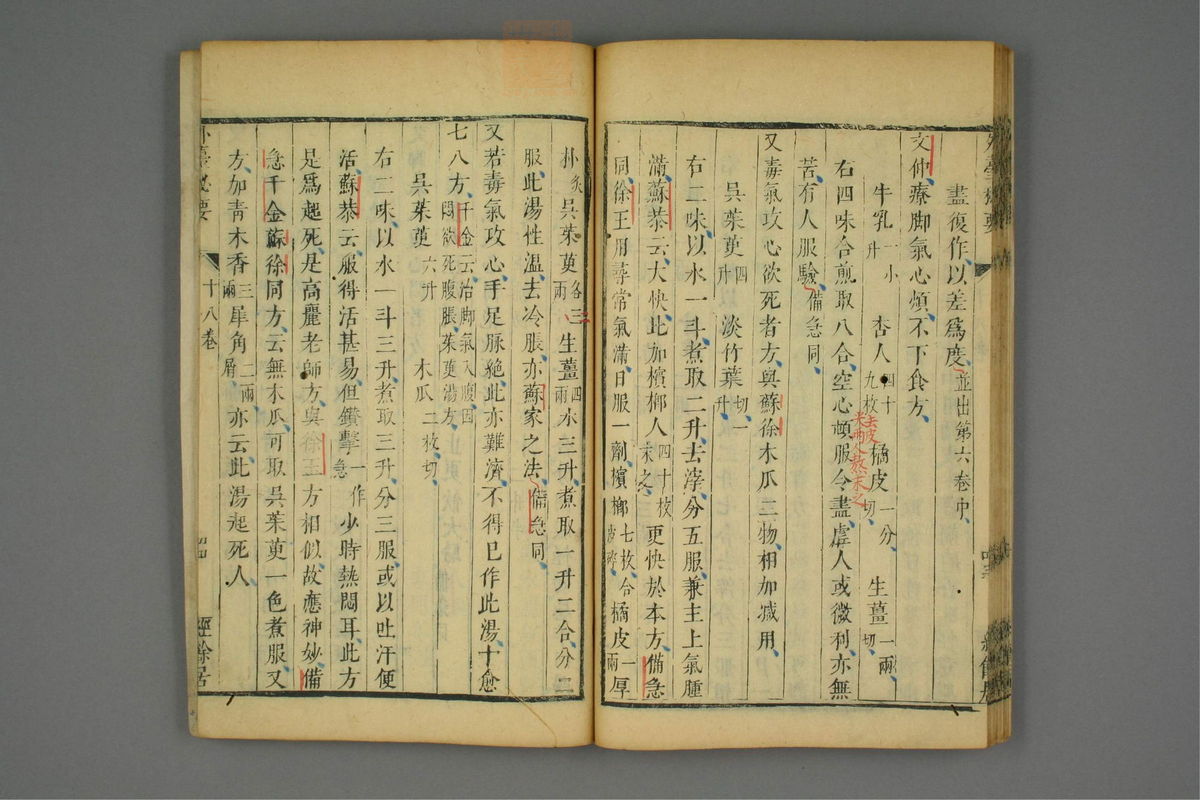 盡復作、以差爲度、並出第六卷中、
文仲療脚氣心煩、不下食方、
牛乳一小升 杏人四十九枚 去皮尖兩人熬末之 橘皮一分、切、 生薑一兩、切、
右四味合煎取八合、空心頓服令盡、虛人或微利、亦無
苦、有人服驗、備急同、
又毒氣攻心欲死者方、與蘇徐木瓜三物、相加減用、
吳茱萸四升 淡竹葉切、一升、
右二味、以水一斗、煮取二升、去滓、分五服、兼主上氣腫
滿、蘇恭云、大快、此加檳榔人四十枚末之、更快於本方、備急
同、徐王用尋常氣滿、日服一劑、檳榔七枚、合皮碎、橘皮一兩厚
朴炙吳茱萸各三兩 三 生薑四兩水三升、煮取一升二合、分二
服、此湯性溫、去冷脹、亦蘇家之法、備急同、
又若毒氣攻心、手足脉絶、此亦難濟、不得已作此湯、十愈
七八方、千金云、治脚氣入腹、困悶欲死、腹脹、茱萸湯方、
吳茱萸六升 木瓜二枚、切、
右二味、以水一斗三升、煮取三升、分三服、或以吐汗便
活、蘇恭云、服得活甚易、但鑽擊一作急少時熱悶耳、此方
是爲起死、是高麗老師方、與徐王方相似、故應神妙、備
急千金蘇徐同、方云、無木瓜、可取吳茱萸一色煮服、又
方、加青木香三兩犀角二兩屑亦云、此湯起死人、
十八卷
經餘居